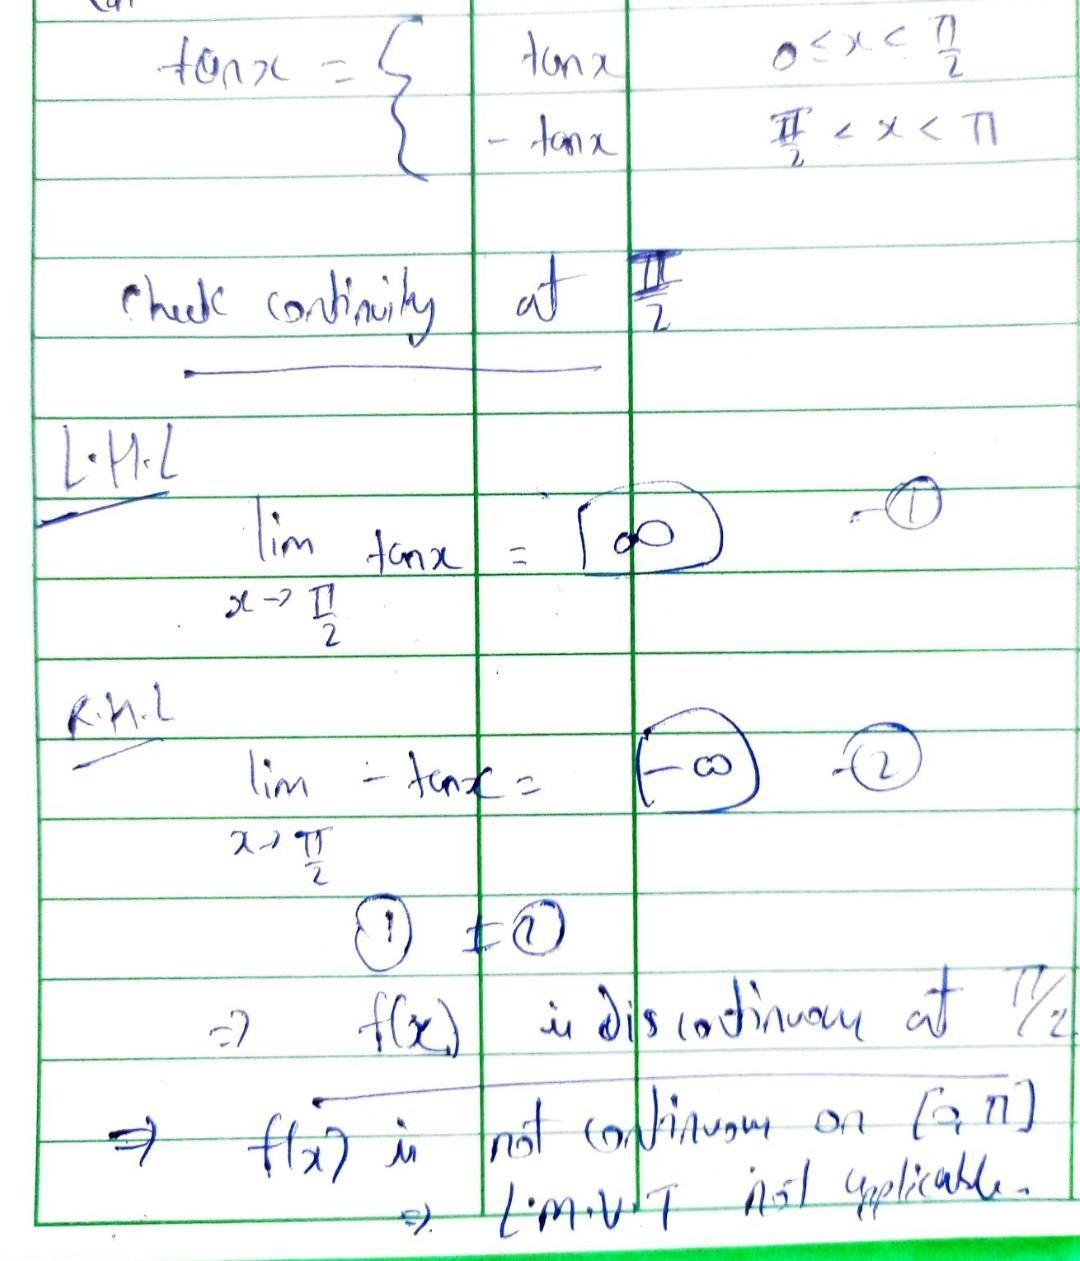 tanx = { tanx 0 ≤ x < π/2
- tanx π/2 < x < π
check continuity at π/2
L.H.L
lim tanx = ∞ - ①
x → π/2
R.H.L
lim - tanx = -∞ - ②
x → π/2
① ≠ ②
⇒ f(x) is discontinuous at π/2
⇒ f(x) is not continuous on [0, π]
⇒ L.M.V.T not applicable.